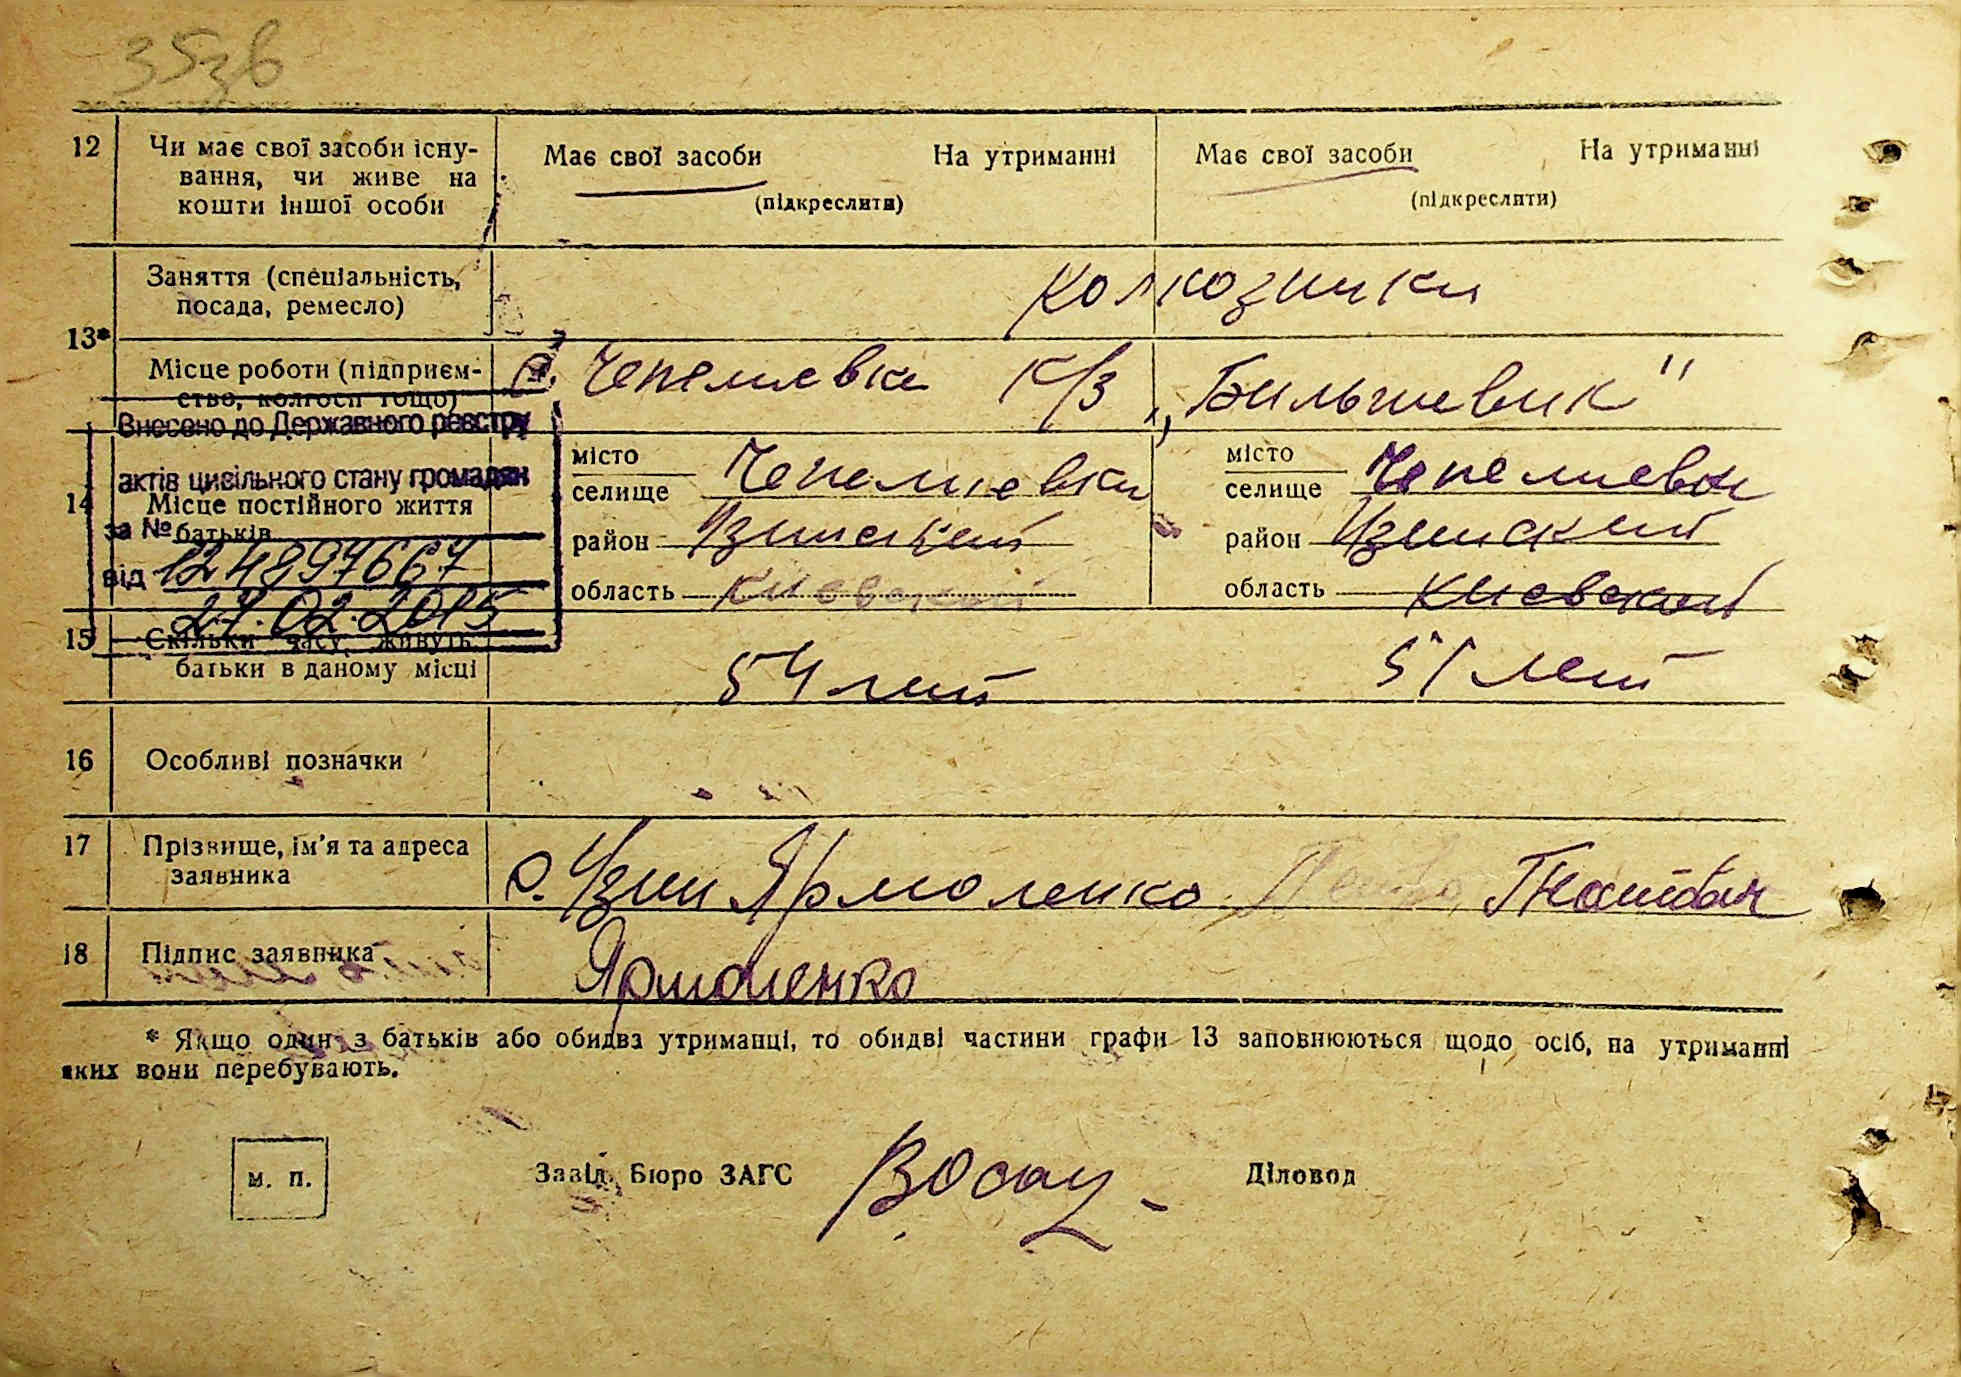 35зв
12 Чи має свої засоби існу-
вання, чи живе на
кошти іншої особи
Має свої засоби На утриманні
(підкреслити)
Має свої засоби На утриманні
(підкреслити)
13*
Заняття (спеціальність,
посада, ремесло)
колхозники
Місце роботи (підприєм-
ство, колгосп тощо)
с. Чепелиевка к/з „Бильшевик"
Внесено до Державного реєстру
актів цивільного стану громадян
за №
124897667
від
27.02.2015
14 Місце постійного життя
батьків
місто
селище Чепелиевка
район Узинский
область Киевской
місто
селище Чепелиевка
район Узинский
область Киевской
15 Скільки часу живуть
батьки в даному місці
54 лет
51 лет
16 Особливі позначки
17 Прізвище, ім'я та адреса
заявника
с. Узин Ярмоленко Гнатович
18 Підпис заявника
Ярмоленко
* Якщо один з батьків або обидва утриманці, то обидві частини графи 13 заповнюються щодо осіб, на утриманні
яких вони перебувають.
м. п.
Завід. Бюро ЗАГС
Діловод